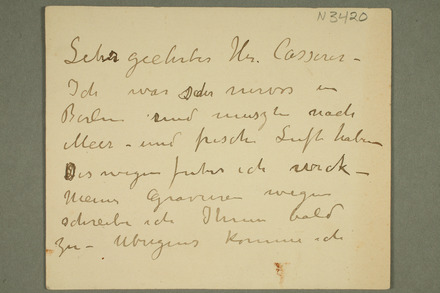 N3420
Sehr geehrter Hr. Cassirer –
Ich war sehr nervos in
Berlin und muszte nach
Meer – und frische Luft haben
Deswegen ich
Meiner Gravuren wegen
schreibe ich Ihnen bald
zu – Ubrigens komme ich